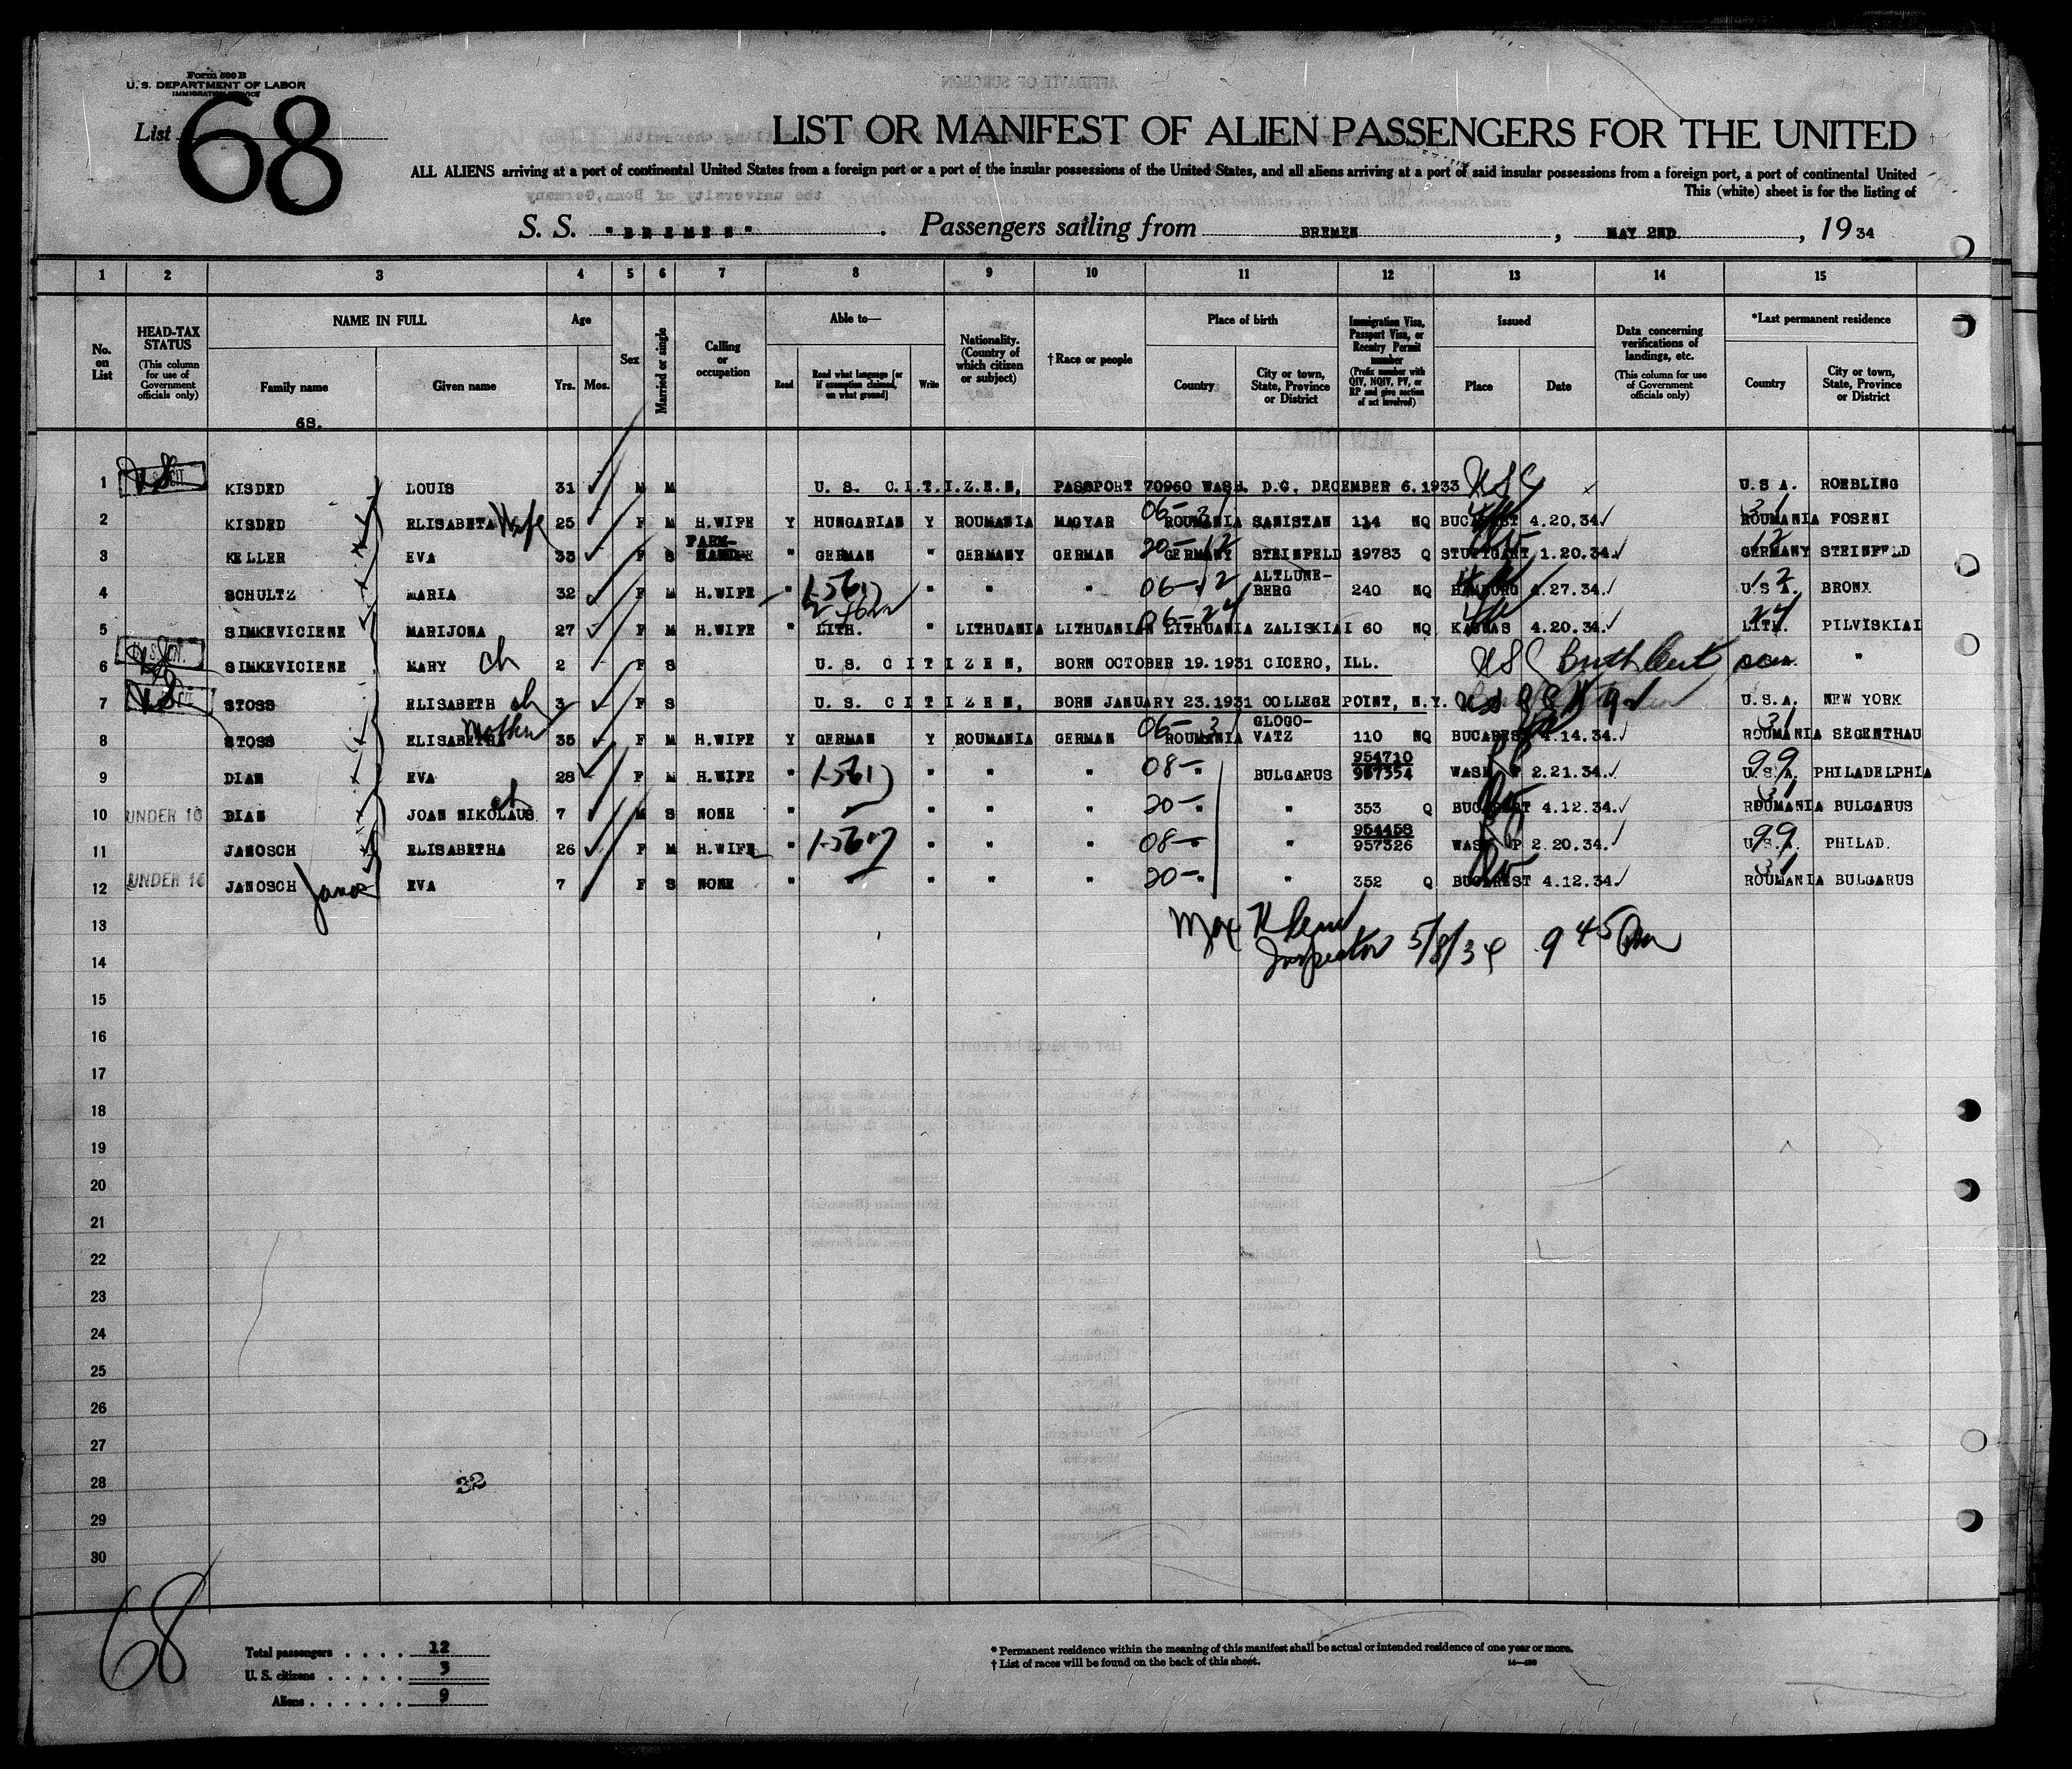 Form 500 B
U. S. DEPARTMENT OF LABOR
IMMIGRATION SERVICE
List 68
LIST OR MANIFEST OF ALIEN PASSENGERS FOR THE UNITED
ALL ALIENS arriving at a port of continental United States from a foreign port or a port of the insular possessions of the United States, and all aliens arriving at a port of said insular possessions from a foreign port, a port of continental United
This (white) sheet is for the listing of
S. S. "BREMEN". Passengers sailing from BREMEN, MAY 2ND, 19 34
1 2 3 4 5 6 7 8 9 10 11 12 13 14 15
No. on List
HEAD-TAX STATUS (This column for use of Government officials only)
NAME IN FULL Family name Given name
Age Yrs. Mos.
Sex
Married or single
Calling or occupation
Able to— Read Read what language [or if exemption claimed, on what ground] Write
Nationality. (Country of which citizen or subject)
†Race or people
Place of birth Country City or town, State, Province or District
Immigration Visa, Passport Visa, or Reentry Permit number (Prefix number with QIV, NQIV, PV, or RP and give section of act involved)
Issued Place Date
Data concerning verifications of landings, etc. (This column for use of Government officials only)
*Last permanent residence Country City or town, State, Province or District
68.
1 KISDED LOUIS 31 M M U. S. C.I.T.I.Z.E.N, PASSPORT 70960 WASH. D.C. DECEMBER 6.1933 USC U.S A. ROEBLING
2 KISDED ELISABETA Wife 25 F M H.WIFE Y HUNGARIAN Y ROUMANIA MAGYAR 06-31 ROUMANIA SANISTAN 114 NQ BUCAREST 4.20.34. 31 ROUMANIA FOSENI
3 KELLER EVA 33 F S FARM-HAND " GERMAN " GERMANY GERMAN 20-12 GERMANY STEINFELD 29783 Q STUTTGART 1.20.34. 12 GERMANY STEINFELD
4 SCHULTZ MARIA 32 F M H.WIFE " " " " " 06-12 ALTLUNE-BERG 240 NQ HAMBURG 4.27.34. 12 U.S A. BRONX
5 SIMKEVICIENE MARIJONA 27 F M H.WIFE " LITH. " LITHUANIA LITHUANIAN 06-24 LITHUANIA ZALISKIAI 60 NQ KAUNAS 4.20.34. 24 LITH. PILVISKIAI
6 SIMKEVICIENE MARY ch 2 F S U. S. C I T I Z E N, BORN OCTOBER 19.1931 CICERO, ILL. USC Birth Cert "
7 STOSS ELISABETH ch 3 F S U. S. C I T I Z E N, BORN JANUARY 23.1931 COLLEGE POINT, N.Y. U.S.A. NEW YORK
8 STOSS ELISABETHA Mother 35 F M H.WIFE Y GERMAN Y ROUMANIA GERMAN 06-31 ROUMANIA GLOGO-VATZ 110 NQ BUCAREST 4.14.34. 31 ROUMANIA SEGENTHAU
9 DIAN EVA 28 F M H.WIFE " " " " 08- " BULGARUS 954710 957354 WASH RP 2.21.34. 99 U.S.A. PHILADELPHIA
10 UNDER 16 DIAN JOAN NIKOLAUS ch 7 M S NONE " " " " " 20- " " 353 Q BUCAREST 4.12.34. 31 ROUMANIA BULGARUS
11 JANOSCH ELISABETHA 26 F M H.WIFE " " " " 08- " " 954458 957326 WASH RP 2.20.34. 99 U.S.A. PHILAD.
12 UNDER 16 JANOSCH EVA 7 F S NONE " " " " " 20- " " 352 Q BUCAREST 4.12.34. 31 ROUMANIA BULGARUS
13
Inspector 5/8/34 9 45 Pm
14
15
16
17
18
19
20
21
22
23
24
25
26
27
28 32
29
30
68
Total passengers . . . . 12
U. S. citizens . . . . . 3
Aliens . . . . . . 9
* Permanent residence within the meaning of this manifest shall be actual or intended residence of one year or more.
† List of races will be found on the back of this sheet.